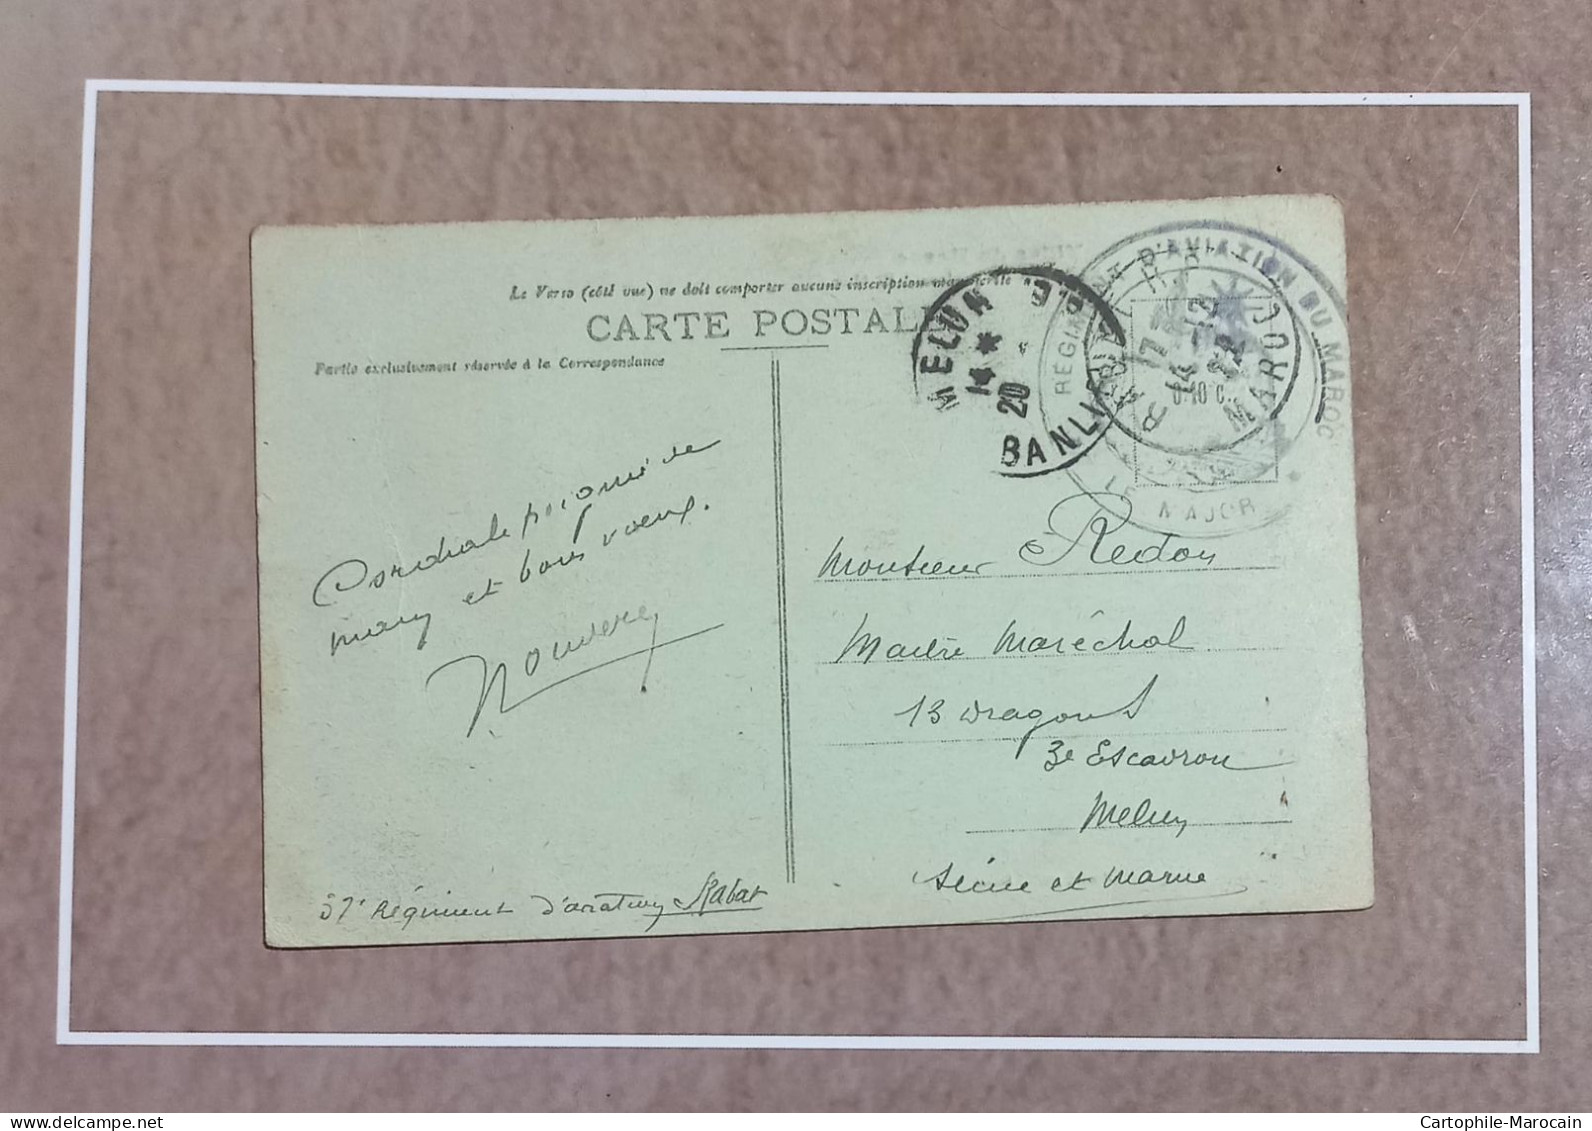 Le Verso (côté vue) ne doit comporter aucune inscription manuscrite
CARTE POSTALE
Partie exclusivement réservée à la Correspondance
MELUN
14 *
20
BANLIEUE
RÉGIMENT D'AVIATION DU MAROC
MAJOR
RABAT R.P.
17
14 - 12
MAROC
0.10 C.
Cordiale poignée de
main et bons vœux.
37e Régiment d'aviation Rabat
Monsieur Redon
Maître Maréchal
13 Dragons
3e Escadron
Melun
Seine et Marne
Cartophile-Marocain